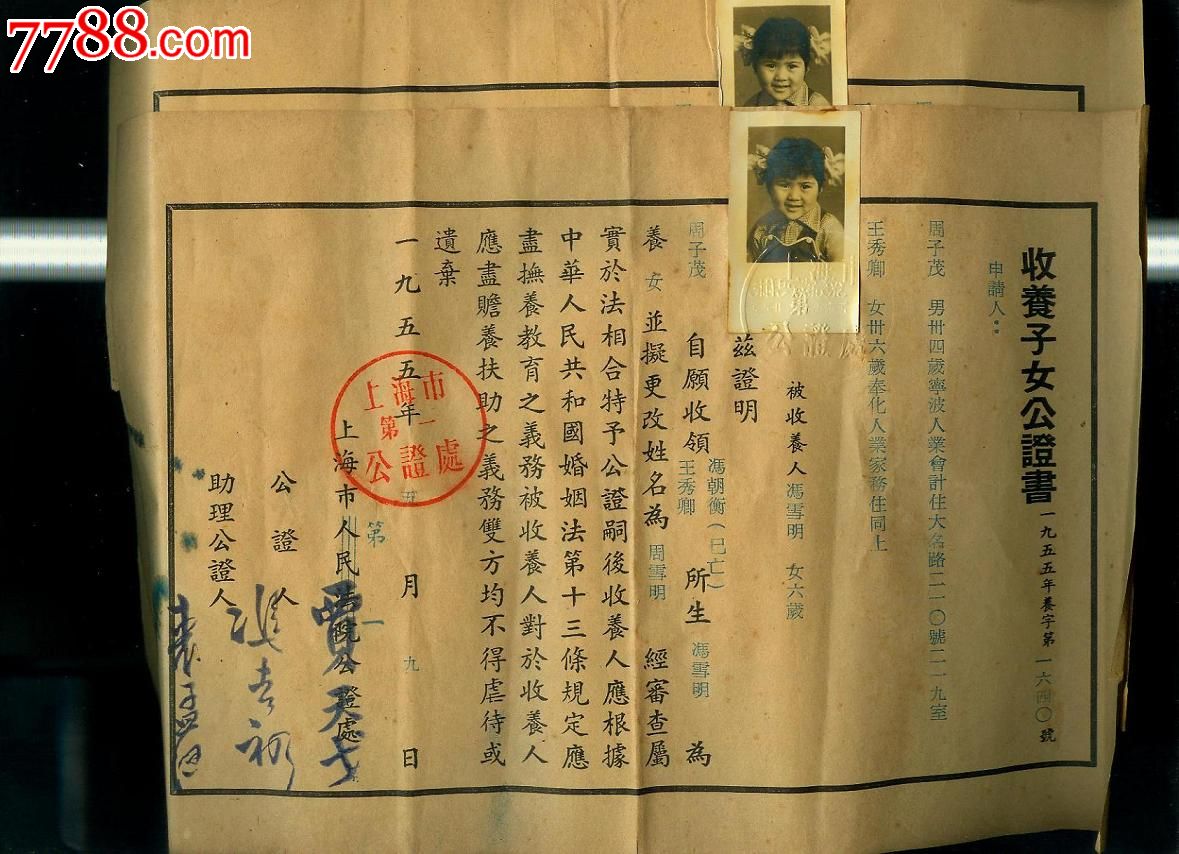 7788.com
收養子女公證書 一九五五年養字第一六四〇號
申請人：
周子茂 男卅四歲寧波人業會計住大名路二一〇號二一九室
王秀卿 女卅六歲奉化人業家務住同上
被收養人 馮雪明 女六歲
茲證明
周子茂 王秀卿 自願收領 馮朝衡（已亡） 所生 馮雪明 為
養女並擬更改姓名為 周雪明 經審查屬
實於法相合特予公證嗣後收養人應根據
中華人民共和國婚姻法第十三條規定應
盡撫養教育之義務被收養人對於收養人
應盡贍養扶助之義務雙方均不得虐待或
遺棄
一九五五年 五 月 九 日
上海市人民法院公證處
第一
公證人
助理公證人
上海市
第一
公證處
公證處